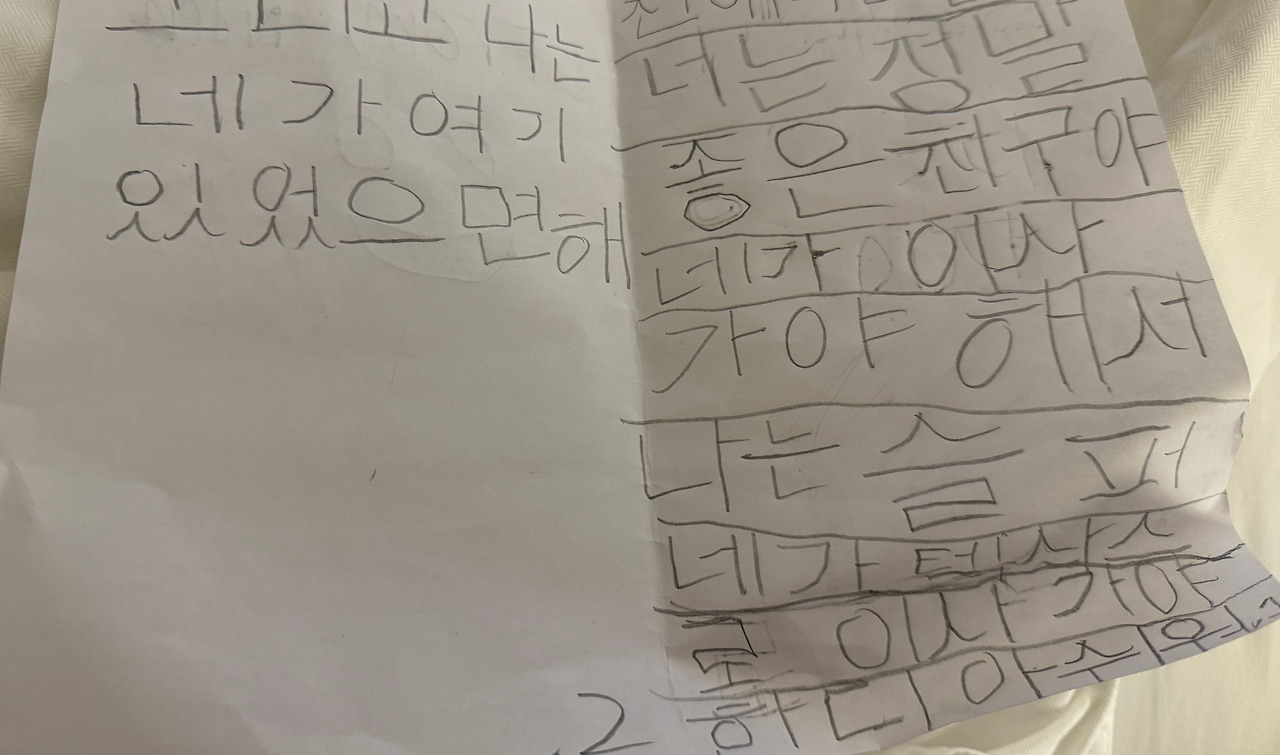 그리고 나는
네가 여기
있었으면해
너는 정말
좋은 친구야
네가 이사
가야 해서
나는 슬퍼
네가 텍사스
로 이사 가야
2